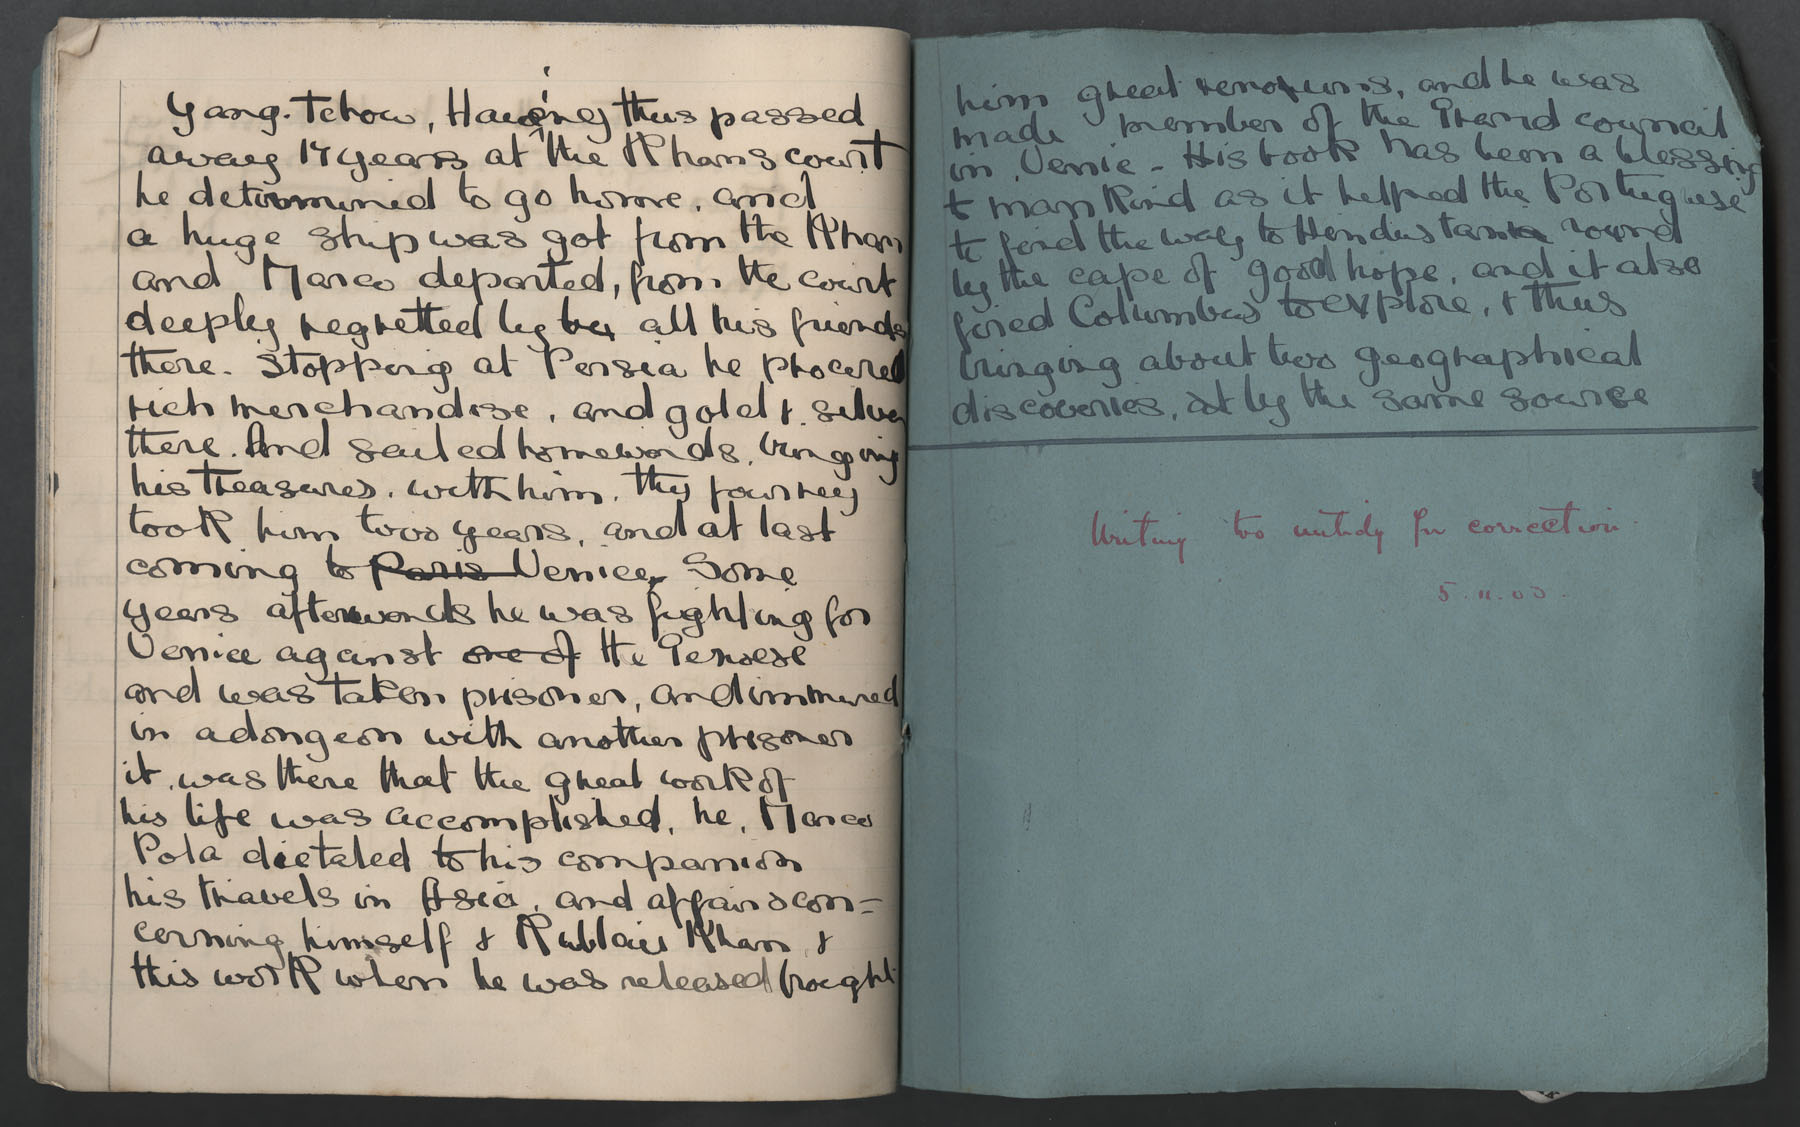 Yang-Tchow, Having thus passed
away 17 years at the Khans court
he determined to go home, and
a huge ship was got from the Khan
and Marco departed, from the court
deeply regretted by all his friends
there. Stopping at Persia he procered
rich merchandise, and gold & silver
there. And sailed homewords, bringing
his treasures. with him. They journey
took him two years, and at last
coming to Paris Venice, Some
years afterwords he was fighting for
Venice against one of the Genoese
and was taken prisoner, and immured
in a dongeon with another prisoner
it was there that the great work of
his life was accomplished, he, Marco
Pola dictated to his companion
his travels in Asia, and affairs con=
cerning himself & Kublai Khan &
this work when he was released brought
him great renowns, and he was
made member of the Grand council
in Venie - His book has been a blessing
to mankind as it helped the Portuguese
to find the way to Hindustan round
by the cape of good hope, and it also
fired Columbus to explore, & thus
bringing about two geographical
discoveries, at by the same source
Writing too untidy for correction
5.11.03.